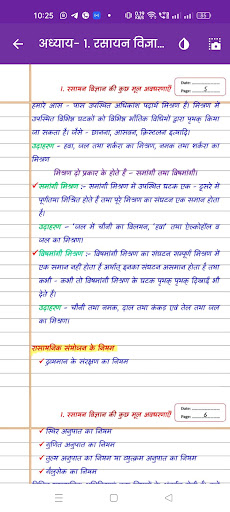 10:25
55
अध्याय- 1. रसायन विज्ञा...
1. रसायन विज्ञान की कुछ मूल अवधारणाएँ
Date:
Page: 5
हमारे आस - पास उपस्थित अधिकांश पदार्थ मिश्रण है। मिश्रण में
उपस्थित विभिन्न घटकों को विभिन्न भौतिक विधियों द्वारा पृथक् किया
जा सकता है। जैसे - छानना, आसवन, क्रिस्टलन इत्यादि।
उदाहरण - हवा, जल तथा शर्करा का मिश्रण, नमक तथा शर्करा का
मिश्रण
मिश्रण दो प्रकार के होते हैं - समांगी तथा विषमांगी।
✓ समांगी मिश्रण :- समांगी मिश्रण में उपस्थित घटक एक - दूसरे में
पूर्णतया मिश्रित होते हैं तथा पूरे मिश्रण का संघटन एक समान होता
है।
उदाहरण - 'जल में चीनी का विलयन, 'हवा' तथा ऐल्कोहॉल व
जल का मिश्रण।
✓ विषमांगी मिश्रण :- विषमांगी मिश्रण का संघटन सम्पूर्ण मिश्रण में
एक समान नहीं होता है अर्थात् इनका संघटन असमान होता है तथा
कभी - कभी तो विषमांगी मिश्रण के घटक पृथक् पृथक् दिखाई भी
देते हैं।
उदाहरण - चीनी तथा नमक, दाल तथा कंकड़ एवं तेल तथा जल
का मिश्रण।
रासायनिक संयोजन के नियम
✓ द्रव्यमान के संरक्षण का नियम
1. रसायन विज्ञान की कुछ मूल अवधारणाएँ
Date:
Page: 6
✓ स्थिर अनुपात का नियम
✓ गुणित अनुपात का नियम
✓ तुल्य अनुपात का नियम या व्युत्क्रम अनुपात का नियम
✓ गैलुसेक का नियम